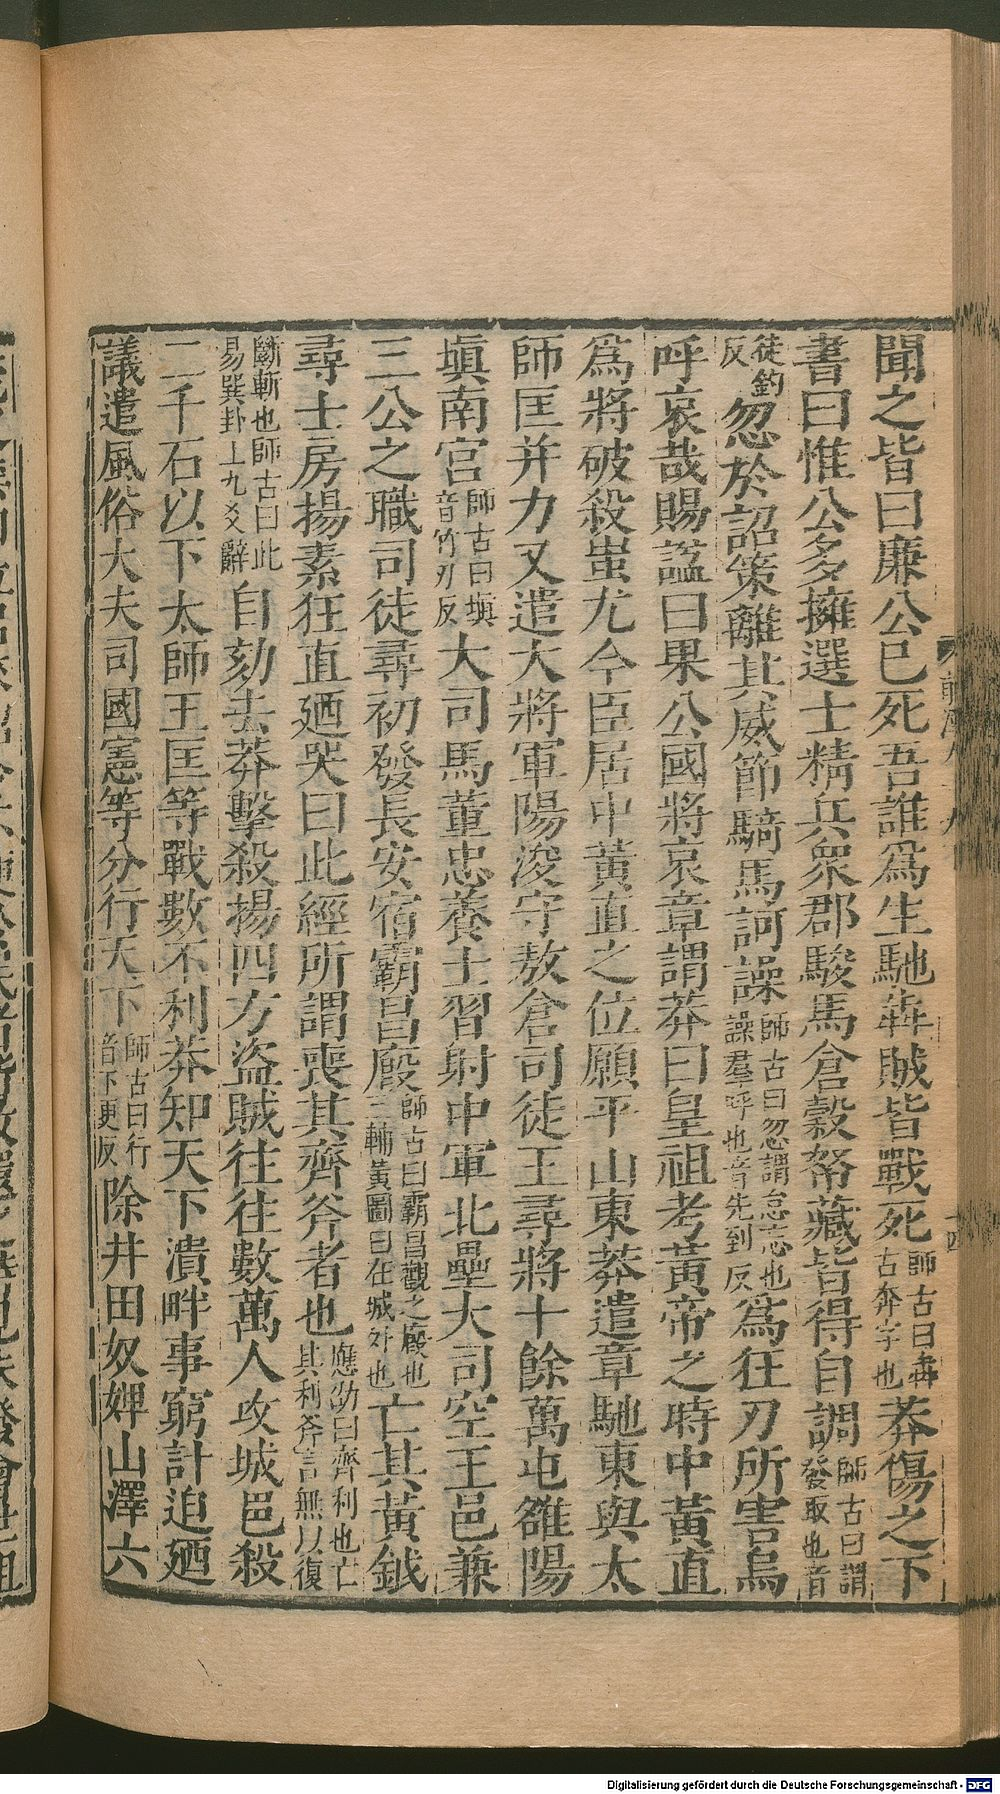 聞之皆曰廉公已死吾誰爲生馳犇賊皆戰死師古曰犇古奔字也莽傷之下
書曰惟公多擁選士精兵衆郡駿馬倉穀帑藏皆得自調師古曰調謂發取也音
徒釣反忽於詔策離其威節騎馬訶譟師古曰忽謂怠忘也譟羣呼也音先到反爲狂刃所害烏
呼哀哉賜諡曰果公國將哀章謂莽曰皇祖考黃帝之時中黃直
爲將破殺蚩尤今臣居中黃直之位願平山東莽遣章馳東與太
師匡并力又遣大將軍陽浚守敖倉司徒王尋將十餘萬屯雒陽
塡南宮師古曰塡音竹刃反大司馬董忠養士習射中軍北壘大司空王邑兼
三公之職司徒尋初發長安宿霸昌廄師古曰霸昌觀之廄也三輔黃圖曰在城外也亡其黃鉞
尋士房揚素狂直廼哭曰此經所謂喪其齊斧者也應劭曰齊利也亡其利斧言無以復
斷斬也師古曰此易巽卦上九爻辭自劾去莽擊殺揚四方盜賊往往數萬人攻城邑殺
二千石以下太師王匡等戰數不利莽知天下潰畔事窮計迫廼
議遣風俗大夫司國憲等分行天下師古曰行音下更反除井田奴婢山澤六
Digitalisierung gefördert durch die Deutsche Forschungsgemeinschaft - DFG